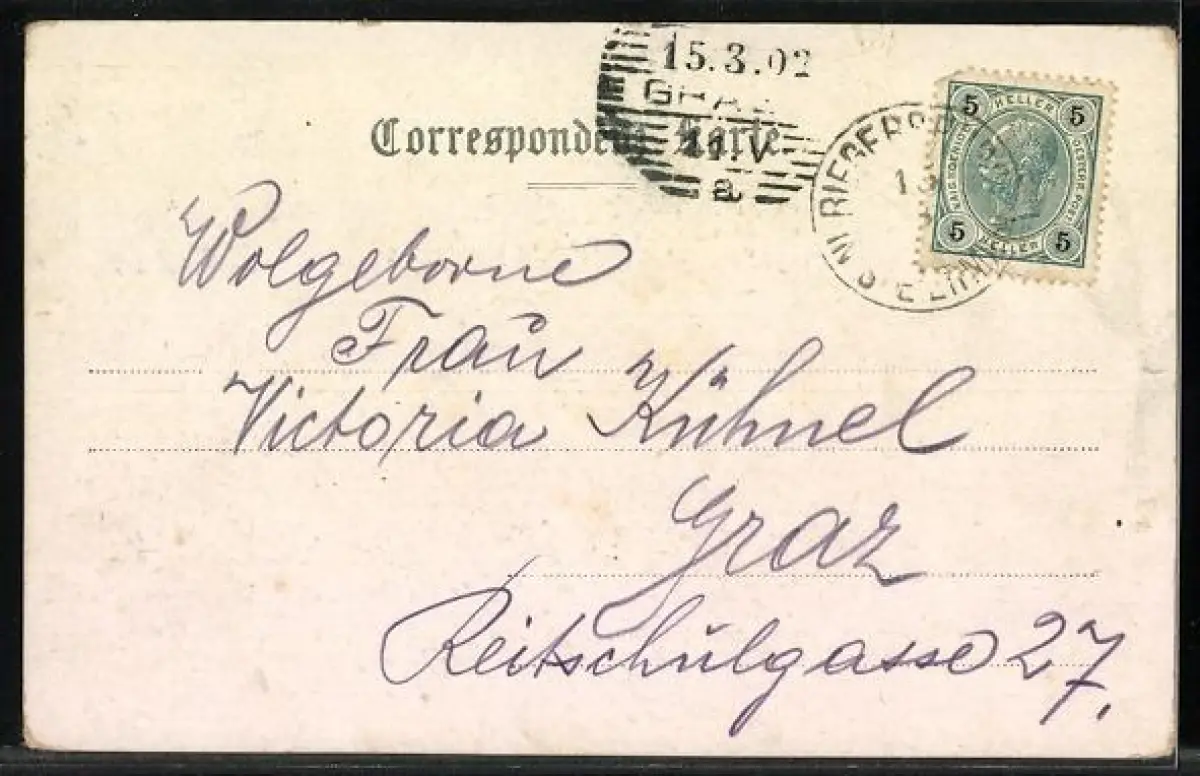 15.3.02
GRAZ
11.V
a
Correspondenz-Karte.
5 HELLER 5
5 HELLER 5
RIEGERSB
Wolgeborne
Frau
Victoria Kühnel
Graz
Reitschulgasse 27.